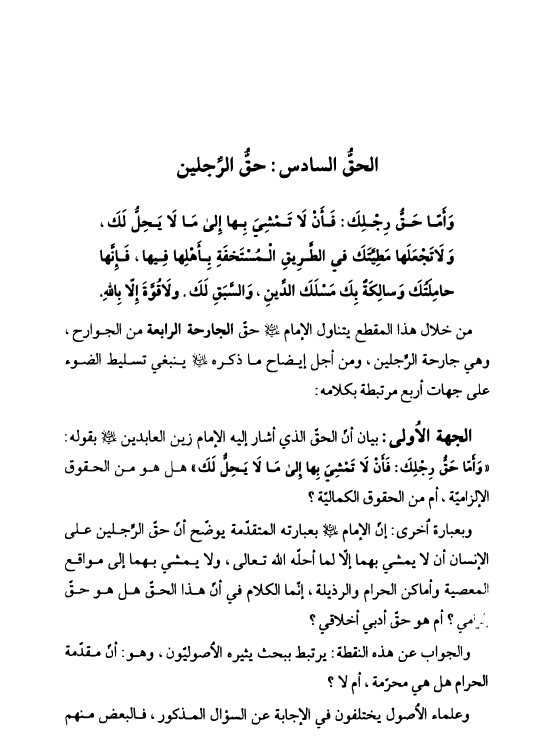 الحقُّ السادس : حقُّ الرِّجلين
وَأَمّا حَقُّ رِجْلِكَ: فَأَنْ لَا تَمْشِيَ بِها إِلىٰ مَا لَا يَحِلُّ لَكَ ،
وَلَاتَجْعَلَها مَطِيَّتَكَ في الطَّرِيقِ الْمُسْتَخفَةِ بِأَهْلِها فِيها ، فَإِنَّها
حامِلَتُكَ وَسالِكَةٌ بِكَ مَسْلَكَ الدِّينِ ، وَالسَّبَقِ لَكَ . ولَاقُوَّةَ إِلّا بِاللهِ.
من خلال هذا المقطع يتناول الإمام ﷺ حقّ الجارحة الرابعة من الجوارح ،
وهي جارحة الرِّجلين ، ومن أجل إيضاح ما ذكره ﷺ ينبغي تسليط الضوء
على جهات أربع مرتبطة بكلامه :
الجهة الأُولى : بيان أنّ الحقّ الذي أشار إليه الإمام زين العابدين ﷺ بقوله :
«وَأَمّا حَقُّ رِجْلِكَ: فَأَنْ لَا تَمْشِيَ بِها إِلىٰ مَا لَا يَحِلُّ لَكَ» هل هو من الحقوق
الإلزاميّة ، أم من الحقوق الكماليّة ؟
وبعبارة أُخرى : إنّ الإمام ﷺ بعبارته المتقدّمة يوضّح أنّ حقّ الرِّجلين على
الإنسان أن لا يمشي بهما إلّا لما أحلّه الله تعالى ، ولا يمشي بهما إلى مواقع
المعصية وأماكن الحرام والرذيلة ، إنّما الكلام في أنّ هذا الحقّ هل هو حقّ
إلزامي ؟ أم هو حقّ أدبي أخلاقي ؟
والجواب عن هذه النقطة : يرتبط ببحث يثيره الأُصوليّون ، وهو : أنّ مقدّمة
الحرام هل هي محرّمة ، أم لا ؟
وعلماء الأُصول يختلفون في الإجابة عن السؤال المذكور ، فالبعض منهم